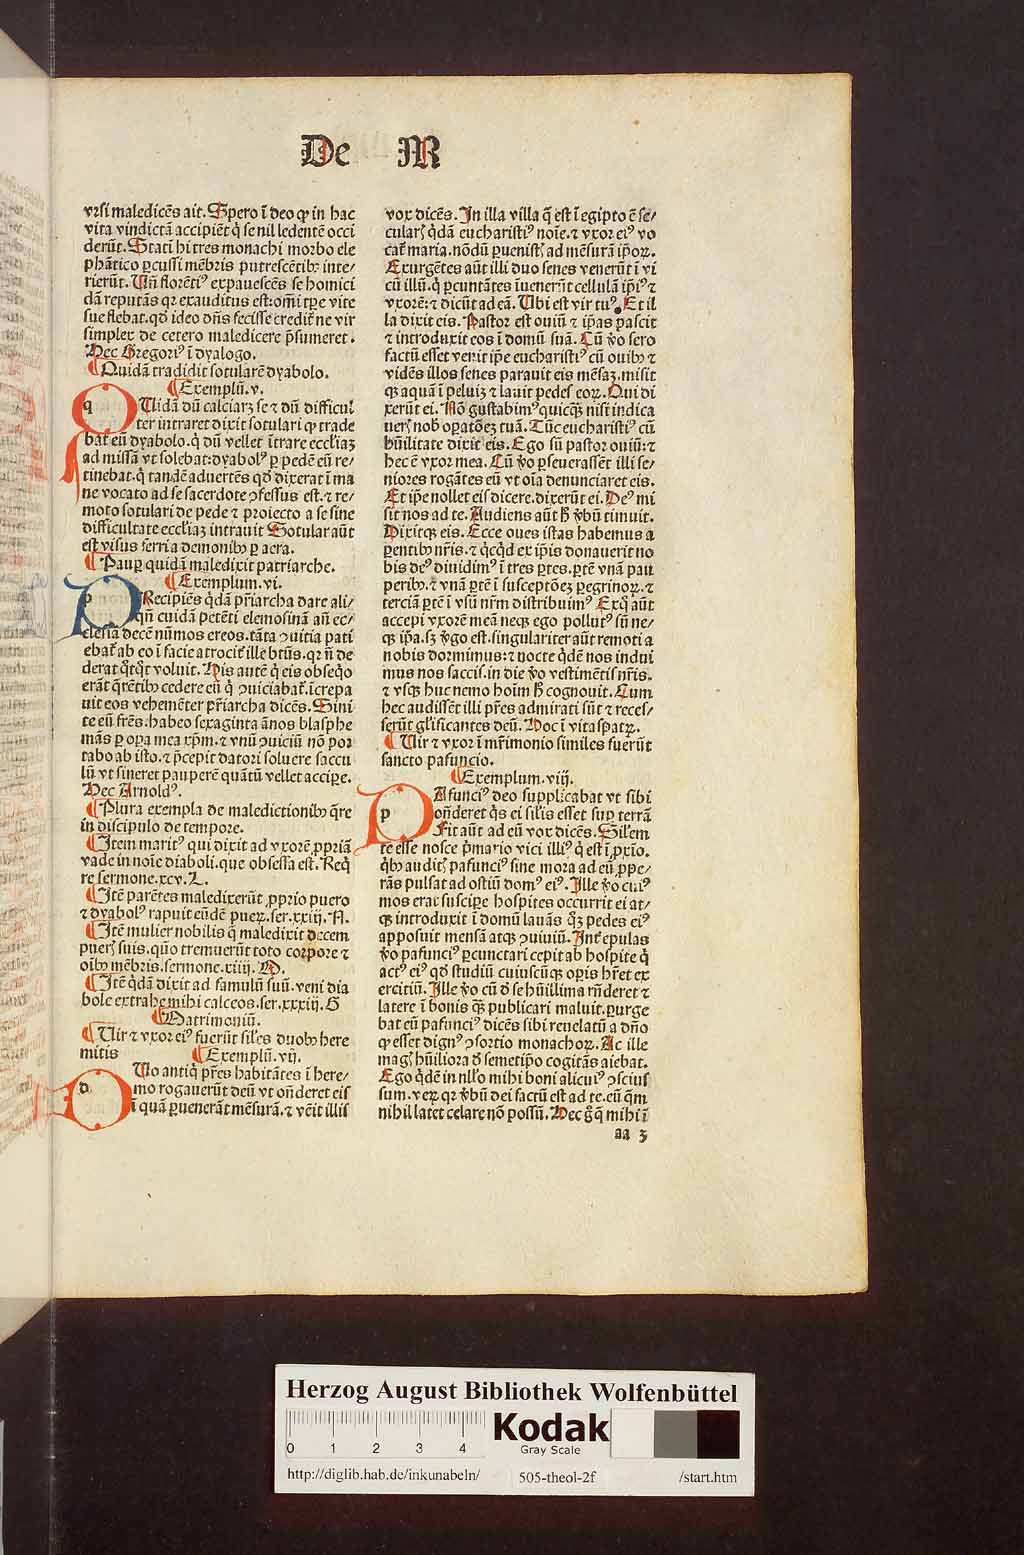 De M
vrsi maledicēs ait. Spero ī deo ꝙ in hac
vita vindictā accipiēt q̇ se nil ledentē occi
derūt. Statī hi tres monachi morbo ele
phātico ꝑcussi mēbris putrescētibꝰ inte/
rierūt. Uñ florētiꝰ expauescēs se homici
dā reputās qꝛ exauditus est: om̄i tꝑe vite
sue flebat. qd̓ ideo dñs fecisse credit̄ ne vir
simplex de cetero maledicere p̄sumeret.
Hec Gregoriꝰ ī dyalogo.
¶ Quidā tradidit sotularē dyabolo.
¶ Exemplū. v.
q Uidā dū calciaꝛꝫ se ⁊ dū difficul
ter intraret dixit sotulari ꝙ trade
bat̄ eū dyabolo. q̇ dū vellet ītrare eccl̓iaꝫ
ad missā vt solebat: dyabolꝰ ꝑ pedē eū re/
tinebat. q̇ tandē aduertēs qd̓ dixerat ī ma
ne vocato ad se sacerdote ꝯfessus est. ⁊ re/
moto sotulari de pede ⁊ proiecto a se sine
difficultate eccl̓iaꝫ intrauit Sotular aūt
est visus ferri a demonibꝰ ꝑ aera.
¶ Pauꝑ quidā maledixit patriarche.
¶ Exemplum. vi.
p Recipiēs q̇dā pr̄iarcha dare ali/
qñ cuidā petēti elemosinā añ ec/
clesiā decē nūmos ereos. tāta ꝯuitia pati
ebat̄ ab eo ī facie atrocit̄ ille bt̄us. qꝛ ñ de
derat q̇tq̇t voluit. His autē q̇ eis obseq̇o
erāt q̄rētibꝰ cedere eū q̇ ꝯuiciabat̄. īcrepa
uit eos vehemēter pr̄iarcha dicēs. Sini
te eū fr̄es. habeo sexaginta ānos blasphe
mās ꝑ oꝑa mea xp̄m. ⁊ vnū ꝯuiciū nō por
tabo ab isto. ⁊ p̄cepit datori soluere saccu
lū vt sineret pauperē quātū vellet acciꝑe.
Hec Arnoldꝰ.
¶ Plura exempla de maledictionibꝰ q̄re
in discipulo de tempore.
¶ Item maritꝰ qui dixit ad vxorē ꝓpriā
vade in noīe diaboli. que obsessa est. Req̄
re sermone. xcv. L.
¶ Itē parētes maledixerūt ꝓprio puero
⁊ dyabolꝰ rapuit eūdē pueꝝ. ser. xxiij. N.
¶ Itē mulier nobilis q̄ maledixit decem
pueꝝ suis. quō tremuerūt toto corpore ⁊
oībꝰ mēbris. sermone. xiiij. D.
¶ Itē q̇dā dixit ad famulū suū. veni dia
bole extrahe mihi calceos. ser. xxxiij. G
¶ Matrimoniū.
¶ Uir ⁊ vxor eiꝰ fuerūt sil̓es duobꝰ here
mitis ¶ Exemplū. vij.
d Uo antiq̇ pr̄es habitātes ī here/
mo rogauerūt deū vt oñderet eis
ī quā ꝑuenerāt mēsurā. ⁊ vēit illis
vox dicēs. In illa villa q̄ est ī egipto ē se/
cularꝭ q̇dā eucharistiꝰ noīe. ⁊ vxor eiꝰ vo
cat̄ maria. nōdū ꝑuenistꝭ ad mēsurā ip̄oꝝ.
Exurgētes aūt illi duo senes venerūt ī vi
cū illū. q̇ ꝑcuntātes īuenerūt cellulā ip̄iꝰ ⁊
vxorē: ⁊ dicūt ad eā. Ubi est vir tuꝰ. Et il
la dixit eis. Pastor est ouiū ⁊ ip̄as pascit
⁊ introduxit eos ī domū suā. Cū v̓o sero
factū esset venit ip̄e eucharistiꝰ cū ouibꝰ ⁊
vidēs illos senes parauit eis mēsaꝫ. misit
qꝫ aquā ī peluiꝫ ⁊ lauit pedes eoꝝ. Qui di
xerūt ei. Nō gustabimꝰ quicqꝫ nisi indica
uerꝭ nob̓ oꝑatōeꝫ tuā. Tūc eucharistiꝰ cū
hūilitate dixit eis. Ego sū pastor ouiū: ⁊
hec ē vxor mea. Cū v̓o ꝑseuerassēt illi se/
niores rogātes eū vt oīa denunciaret eis.
Et ip̄e nollet eis dicere. dixerūt ei. Deꝰ mi
sit nos ad te. Audiens aūt h̓ v̓bū timuit.
Dixitqꝫ eis. Ecce oues istas habemus a
ꝑentibꝰ nr̄is. ⁊ q̇cq̇d ex ip̄is donauerit no
bis deꝰ diuidimꝰ ī tres ꝑtes. ꝑtē vnā pau
peribꝰ. ⁊ vnā ꝑtē ī susceptōeꝫ ꝑegrinoꝝ. ⁊
terciā ꝑtē ī vsū nr̄m distribuimꝰ Exq̇ aūt
accepi vxorē meā neqꝫ ego pollutꝰ sū ne/
qꝫ ip̄a. sꝫ v̓go est. singulariter aūt remoti a
nobis dormimus: ⁊ nocte q̇dē nos indui
mus nos saccis. in die v̓o vestimētis nr̄is.
⁊ vsqꝫ huc nemo hoīm h̓ cognouit. Cum
hec audissēt illi pr̄es admirati sūt ⁊ reces/
serūt gl̓ificantes deū. Hoc ī vitaspatꝝ.
¶ Uir ⁊ vxor ī mr̄imonio similes fuerūt
sancto pafuncio.
¶ Exemplum. viij.
p Afunciꝰ deo supplicabat vt sibi
oñderet q̇s ei sil̓is esset suꝑ terrā
Fit aūt ad eū vox dicēs. Sil̓em
te esse nosce p̄mario vici illiꝰ q̇ est ī ꝓxīo.
q̇bꝰ auditꝭ pafunciꝰ sine mora ad eū ꝓpe/
rās pulsat ad ostiū domꝰ eiꝰ. Ille v̓o cuiꝰ
mos erat susciꝑe hospites occurrit ei at/
qꝫ introduxit ī domū lauās q̇ꝫ pedes eiꝰ
apposuit mensā atqꝫ ꝯuiuiū. Int̄ epulas
v̓o pafunciꝰ ꝑcunctari cepit ab hospite q̇
actꝰ eiꝰ qd̓ studiū cuiuscūqꝫ oꝑis hr̄et ex
ercitiū. Ille v̓o cū d̓ se hūillima rn̄deret ⁊
latere ī bonis qꝫ publicari maluit. ꝑurge
bat eū pafunciꝰ dicēs sibi reuelatū a dn̄o
ꝙ esset dignꝰ ꝯsortio monachoꝝ. Ac ille
magꝭ hūiliora d̓ semetip̄o cogitās aiebat.
Ego q̇dē in nll̓o mihi boni alicuiꝰ ꝯscius
sum. veꝝ qꝛ v̓bū dei factū est ad te. eū qm̄
nihil latet celare nō possū. Hec g̊ q̄ mihi ī
aa 3
Herzog August Bibliothek Wolfenbüttel
0 1 2 3 4
Kodak
Gray Scale
http://diglib.hab.de/inkunabeln/ 505-theol-2f /start.htm